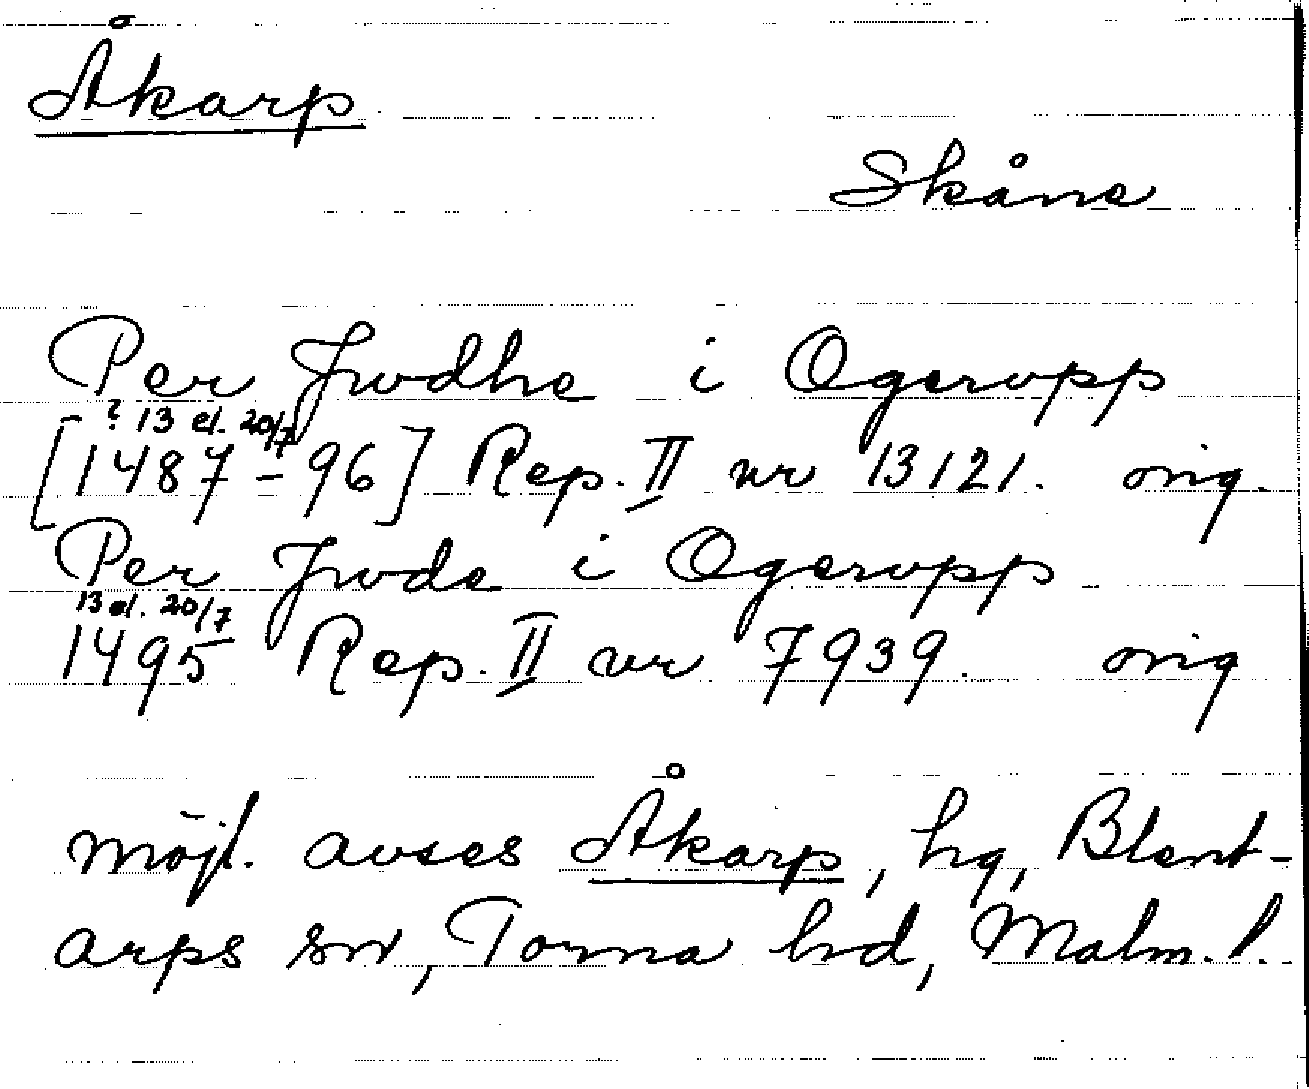 Åkarp
Skåne
Per Jwdhe i Ogeropp
? 13 el. 20/7
[1487-96] Rep. II nr 13121. orig.
Per Jwde i Ogeropp
13 el. 20/7
1495 Rep. II nr 7939. orig
möjl. avses Åkarp, hg, Blent-
arps sn, Torna hd, Malm. l.